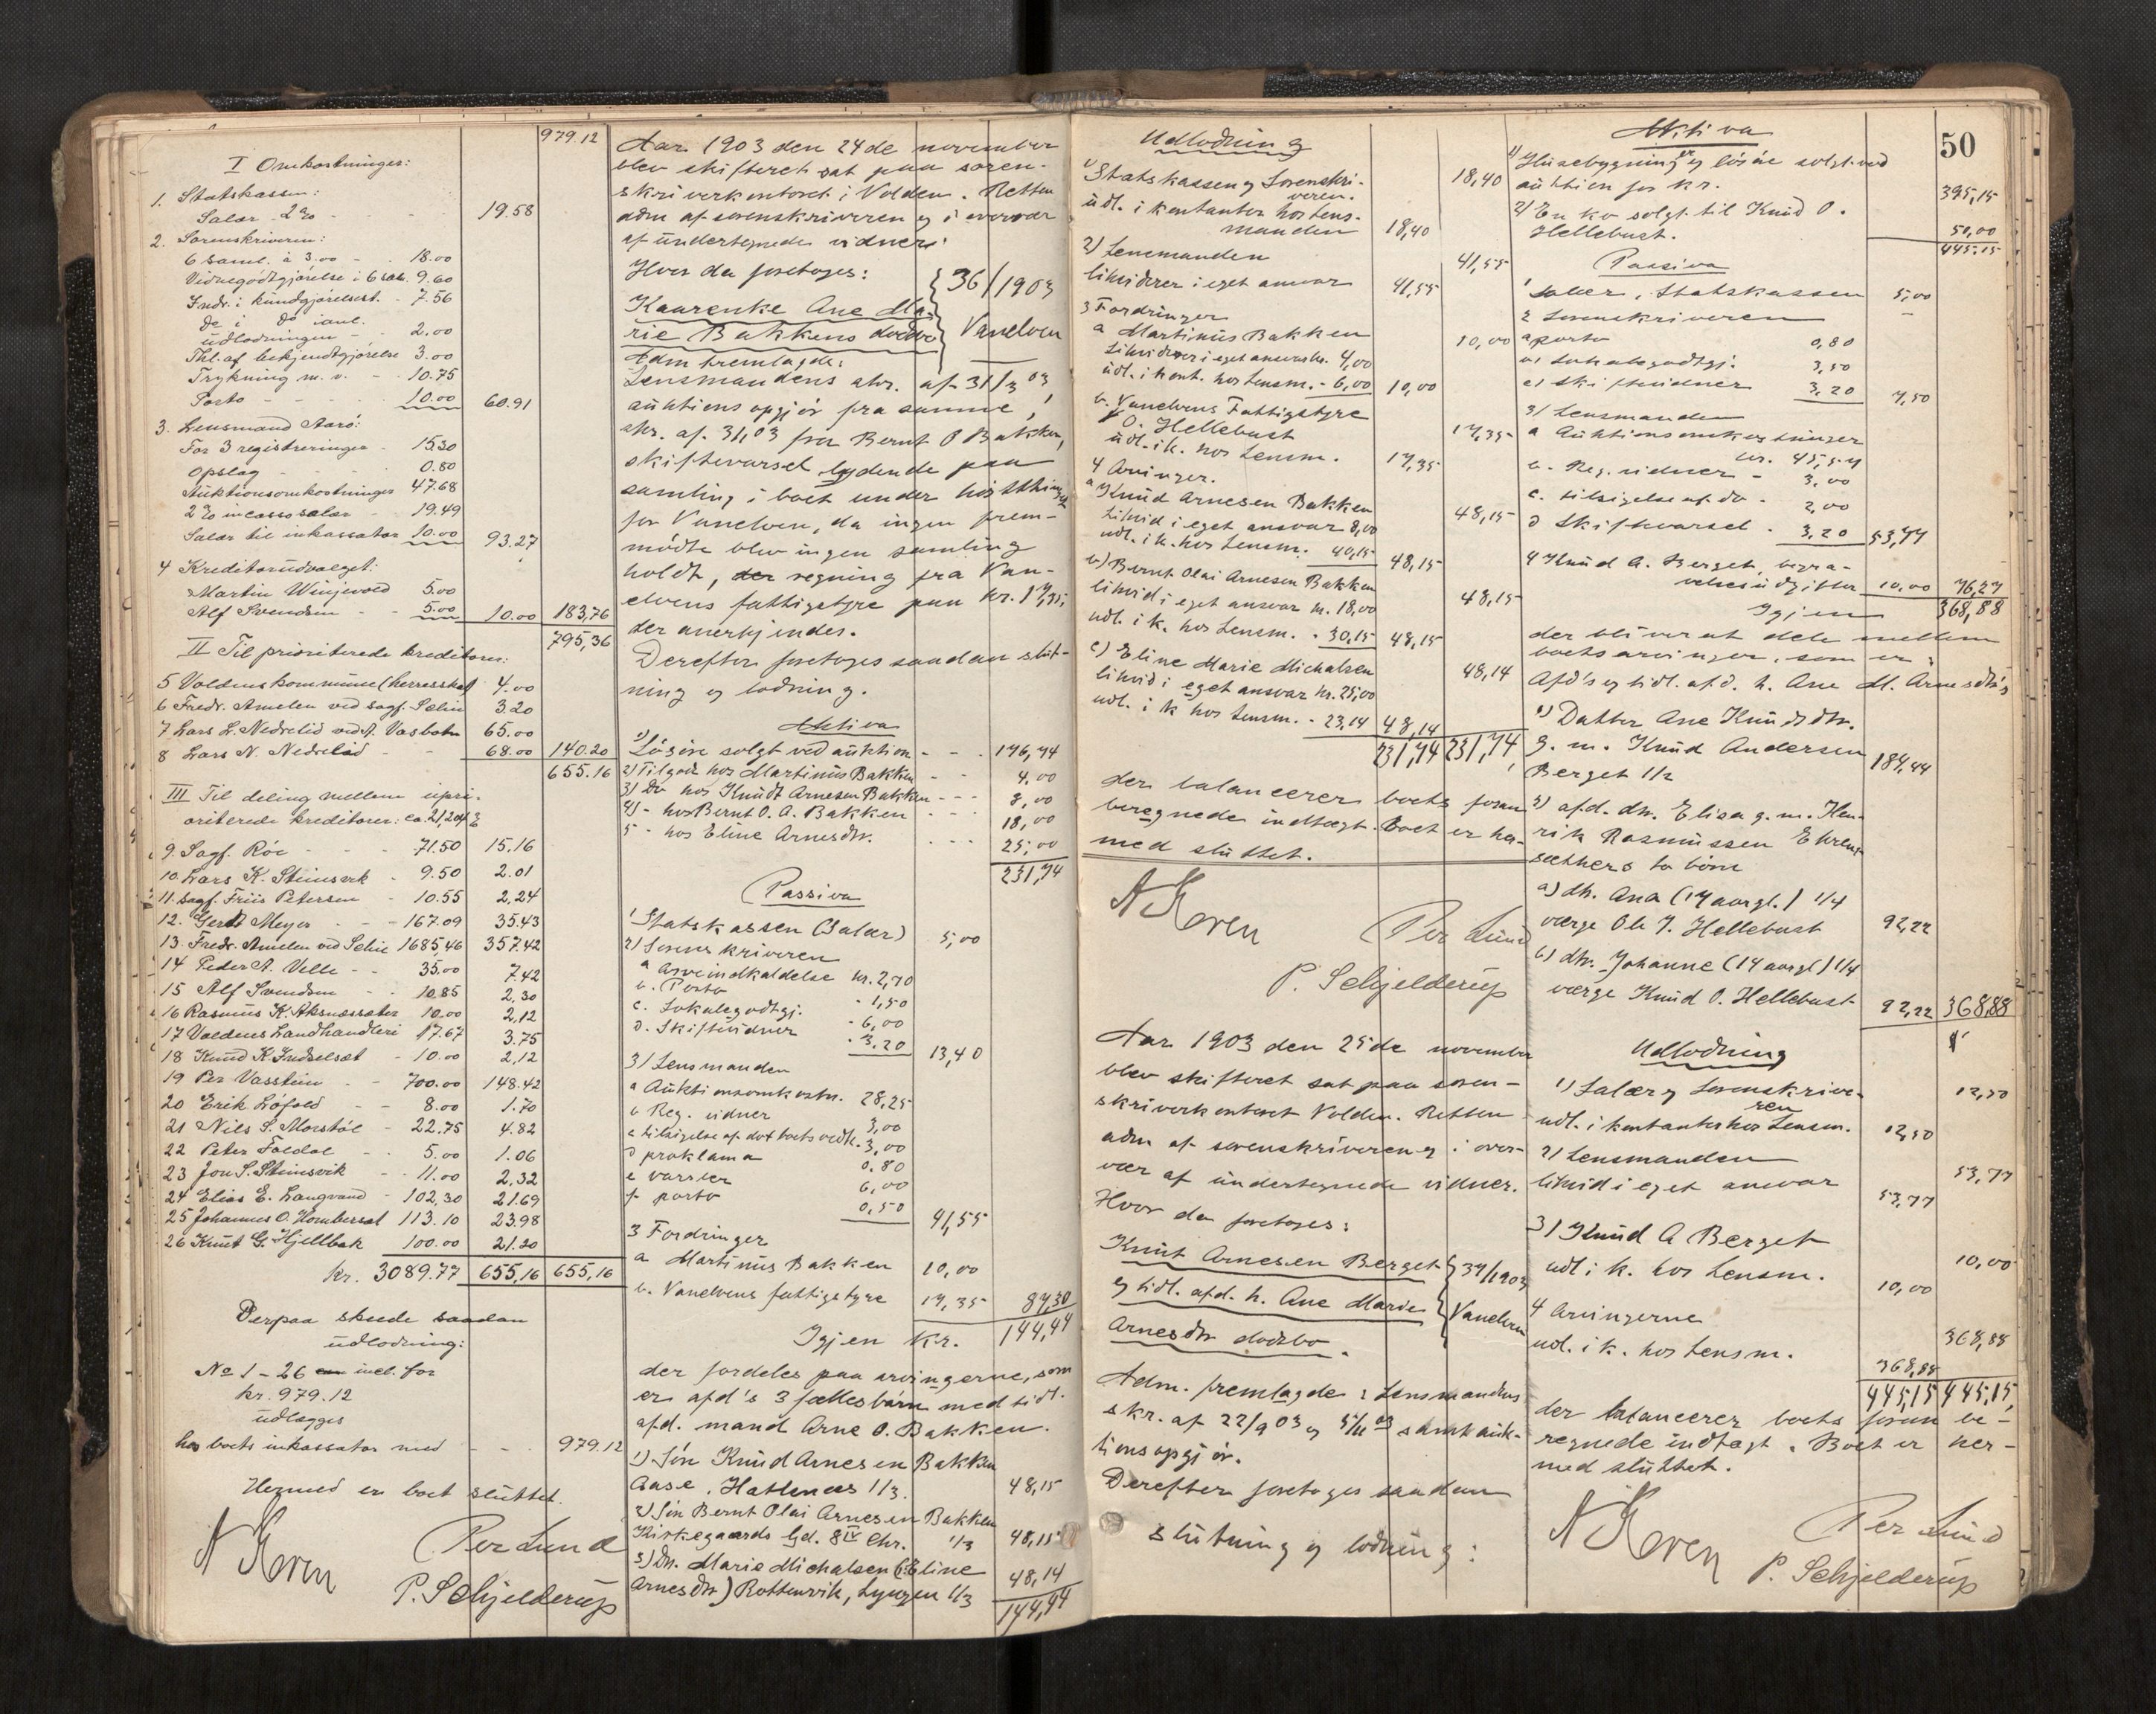 979.12
I Omkostninger:
1. Statskassen:
Salær 2% - 19.58
2. Sorenskriveren:
6 saml. à 3.00 - 18.00
Vidnegodtgjørelse i 6 sam. 9.60
Indr. i kundgjørelsest. - 7.56
do i do ianl.
udlodningen - 2.00
Thl. af bekjendtgjørelse 3.00
Trykning m. v. - 10.75
Porto - 10.00 60.91
3. Lensmand Aarø:
For 3 registreringer - 15.30
Opslag - 0.80
Auktionsomkostninger 47.68
2% incassosalær - 19.49
Salær til inkassator 10.00 93.27
4 Kreditorudvalget:
Martin Winjevold 5.00
Alf Svendsen - 5.00 10.00 183,76
795,36
II Til prioriterede kreditorer:
5 Voldens kommune (herresskat) 4.00
6 Fredr. Amelen ved sagf. Selin 3.20
7 Lars L. Nedrelid ved A. Vasbotn 65.00
8 Lars N. Nedrelid - 68.00 140.20
655.16
III Til deling mellem upri-
oriterede kreditorer: ca. 21,204 %
9. Sagf. Röe - 71.50 15.16
10. Lars K. Steinsvik - 9.50 2.01
11. Sagf. Friis Petersen - 10.55 2,24
12. Gerdt Meyer - 167.09 35.43
13. Fredr. Amelen ved Selin 1685,46 357.42
14 Peder A. Velle - 35.00 7.42
15 Alf Svendsen - 10.85 2,30
16 Rasmus K. Aksnessæter 10.00 2,12
17 Voldens Landhandleri 17.67 3.75
18 Knud K. Indselset - 10.00 2,12
19 Per Vasstein - 700.00 148.42
20 Erik Löfold - 8.00 1.70
21 Nils S. Morstöl - 22.75 4.82
22 Peter Foldal - 5.00 1.06
23 Jon S. Steinsvik - 11.00 2,32
24 Elias E. Langvand - 102,30 21.69
25 Johannes O. Hombersæt 113.10 23.98
26 Knut G. Hjellbak 100.00 21.20
kr. 3089.77 655,16 655,16
Derpaa skede saadan
udlodning:
No 1 - 26 incl. for
kr. 979.12
udlægges
hos boets inkassator med - 979.12
Hermed er boet sluttet.
A Koren
Per Lund
P. Schjelderup
Aar 1903 den 24de november
blev skifteret sat paa soren-
skriverkontoret i Volden. Retten
adm af sorenskriveren og i overvær
af undertegnede vidner:
Hvor da foretoges:
Kaarenke Ane Ma-
rie Bakkens dødsbo
36/1903
Vanelven
Adm fremlagde:
Lensmandens skr. af 31/3 03,
auktionsopgjör fra samme,
skr. af 31/, 03 fra Bernt O Bakken,
skiftevarsel lydende paa
samling i boet under høstthinget
for Vanelven, da ingen frem-
mödte blev ingen samling
holdt, regning fra Van-
elvens fattigstyre paa kr. 17,35
der anerkjendes.
Derefter foretoges saadan slut-
ning og lodning.
Aktiva
1) Lösöre solgt ved auktion - - - 176,74
2) Tilgode hos Martinus Bakken - - 4.00
3) Do hos Knudt Arnesen Bakken - - - 8,00
4) - hos Bernt O. A. Bakken - - - 18,00
5 - hos Eline Arnesdtr. - - - 25,00
231,74
Passiva
1 Statskassen (Salær) 5,00
2) Sorenskriveren
a Arveindkaldelse kr. 2,70
b. Porto - 1,50
c. Lokalegodtgj. - 6,00
d. Skiftevidner - 3.20 13,40
3) Lensmanden
a Auktionsomkostn. 28,25
b Reg. vidner 3,00
c tilsigelse af do + boets vedk. 3,00
d proklama 0,80
e varsler 6,00
f porto 0,50 41,55
3 Fordringer
a Martinus Bakken 10,00
b. Vanelvens fattigstyre 17,35 87,30
Igjen Kr. 144,44
der fordeles paa arvingerne, som
er afd's 3 fællesbörn med tidl.
afd. mand Arne O. Bakken.
1) Sön Knud Arnesen Bakken
Aase, Hatlenæs 1/3. 48,15
2) Sön Bernt Olai Arnesen Bakken
Kirkegaards gd. 8 IV Chr. 1/3 48,15
3) Dtr. Marie Michalsen (Eline
Arnesdtr) Rottenvik, Lyngen 1/3 48,14
144,44
Udlodning
1) Statskassen og Sorenskri-
veren. 18,40
udl. i kontanter hos lens-
manden 18,40
2) Lensmanden 41,55
likviderer i eget ansvar 41,55
3 Fordringer
a Martinus Bakken 10,00
likviderer i eget ansvar kr. 4,00
udl. i kont. hos Lensm. - 6,00 10,00
b. Vanelvens Fattigstyre
O. Hellebust 17,35
udl. i k. hos Lensm. 17,35
4 Arvinger.
a Knud Arnesen Bakken 48,15
likvid i eget ansvar 8,00
udl. i k. hos Lensm. 40,15 48,15
b) Bernt Olai Arnesen Bakken 48,15
likvid i eget ansvar kr. 18,00
udl. i k. hos Lensm. - 30,15 48,15
c) Eline Marie Michalsen 48,14
likvid i eget ansvar kr. 25,00
udl. i k hos Lensm. - 23,14 48,14
231,74 231,74
der balancerer boets foran
beregnede indtægt. Boet er her-
med sluttet.
A Koren
Per Lund
P. Schjelderup
Aar 1903 den 25de november
blev skifteret sat paa soren-
skriverkontoret Volden. Retten
adm af sorenskriveren og i over-
vær af undertegnede vidner.
Hvor da foretoges:
Knut Arnesen Berget
og tidl. afd. h. Ane Marie
Arnesdtr dødsbo.
37/1903
Vanelven
Adm. fremlagde: Lensmandens
skr. af 22/9 03 og 5/11 03 samt auk-
tionsopgjör.
Derefter foretoges saadan
slutning og lodning:
50
Aktiva
1) Husebygning er og lösöre solgt ved
auktion for kr. 395,15
2) En ko solgt til Knud O.
Hellebust. 50,00
445,15
Passiva
1 Salær, Statskassen 5,00
2 Sorenskriveren -
a porto 0,80
b) Lokalegodtgj. 3,50
c) skiftevidner 3,20 7,50
3) Lensmanden
a Auktionsomkostninger
kr. 45,57
b. Reg. vidner - 3,00
c. tilsigelse af do - 2,00
d Skiftevarsel - 3,20 53,77
4 Knud A. Berget, begra-
velsesudgifter 10,00 76,27
Igjen 368,88
der bliver at dele mellem
boets arvinger, som er:
Afd's og tidl. afd. h. Ane M. Arnesdtr's
1) Datter Ane Knudsdtr.
g. m. Knud Andersen
Berget 1/2 184,44
2) afd. dtr. Elisa g. m. Hen-
rik Rasmussen Ehren-
sæthers to börn
a) dtr. Ana (17 aargl.) 1/4
værge Ole J. Hellebust 92,22
b) dtr. Johanne (14 aargl) 1/4
værge Knud O. Hellebust 92,22 368,88
Udlodning
1) Salær og Sorenskrive-
ren 12,50
udl. i kontanter hos Lensm. 12,50
2) Lensmanden 53,77
likvid i eget ansvar 53,77
3) Knud A Berget 10,00
udl i k. hos Lensm. 10,00
4 Arvingerne 368,88
udl. i k. hos Lensm. 368,88
445,15 445,15
der balancerer boets foran be-
regnede indtægt. Boet er her-
med sluttet.
A Koren
Per Lund
P. Schjelderup